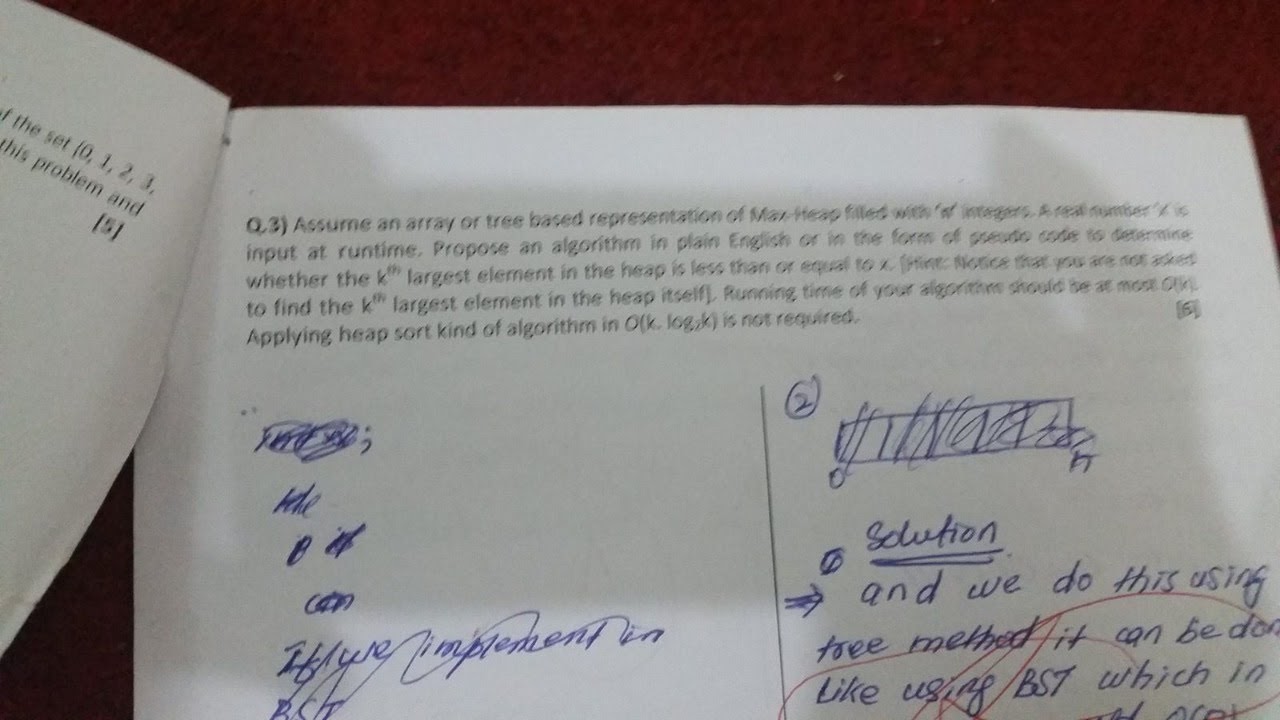 f the set {0, 1, 2, 3,
this problem and
[5]
Q.3) Assume an array or tree based representation of Max-Heap filled with 'n' integers. A real number 'x' is
input at runtime. Propose an algorithm in plain English or in the form of pseudo code to determine
whether the kth largest element in the heap is less than or equal to x. [Hint: Notice that you are not asked
to find the kth largest element in the heap itself]. Running time of your algorithm should be at most O(k).
Applying heap sort kind of algorithm in O(k. log₂k) is not required.
[6]
If we implement in
BST
2
0
n
Solution
⇒ and we do this using
tree method it can be don
Like using BST which in